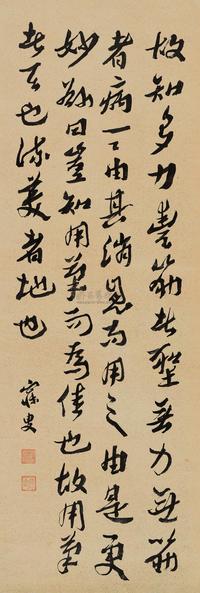 故知多力豐筋者聖無力無筋
者病一一由其消息而用之由是更
妙繇曰豈知用筆而為佳也故用筆
者天也流美者地也
寐叟